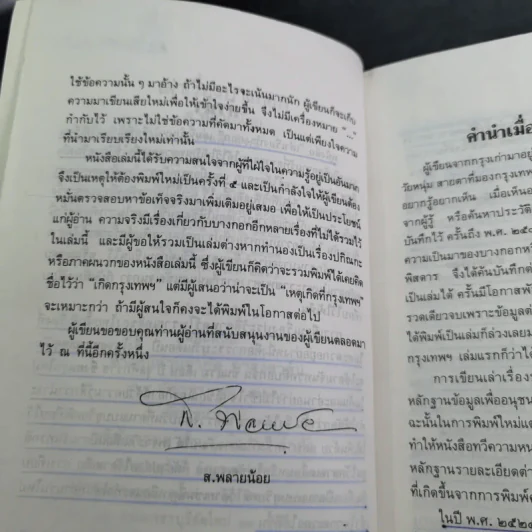 ใช้ข้อความนั้น ๆ มาอ้าง ถ้าไม่มีอะไรจะเน้นมากนัก ผู้เขียนก็จะเก็บ
ความมาเขียนเสียใหม่เพื่อให้เข้าใจง่ายขึ้น จึงไม่มีเครื่องหมาย “...”
กำกับไว้ เพราะไม่ใช่ข้อความที่คัดมาทั้งหมด เป็นแต่เพียงใจความ
ที่นำมาเรียบเรียงใหม่เท่านั้น
หนังสือเล่มนี้ได้รับความสนใจจากผู้ที่ใฝ่ใจในความรู้อยู่เป็นอันมาก
จึงเป็นเหตุให้ต้องพิมพ์ใหม่เป็นครั้งที่ ๕ และเป็นกำลังใจให้ผู้เขียนต้อง
หมั่นตรวจสอบหาข้อเท็จจริงมาเพิ่มเติมอยู่เสมอ เพื่อให้เป็นประโยชน์
แก่ผู้อ่าน ความจริงมีเรื่องเกี่ยวกับบางกอกอีกหลายเรื่องที่ไม่ได้รวมไว้
ในเล่มนี้ และมีผู้ขอให้รวมเป็นเล่มต่างหากทำนองเป็นเรื่องปกิณกะ
หรือภาคผนวกของหนังสือเล่มนี้ ซึ่งผู้เขียนก็คิดว่าจะรวมพิมพ์ได้เคยคิด
ชื่อไว้ว่า “เกิดกรุงเทพฯ” แต่มีผู้เสนอว่าน่าจะเป็น “เหตุเกิดที่กรุงเทพฯ”
จะเหมาะกว่า ถ้ามีผู้สนใจก็คงจะได้พิมพ์ในโอกาสต่อไป
ผู้เขียนขอขอบคุณท่านผู้อ่านที่สนับสนุนงานของผู้เขียนตลอดมา
ไว้ ณ ที่นี้อีกครั้งหนึ่ง
ส.พลายน้อย
คำนำเมื่อ
ผู้เขียนจากกรุงเก่ามาอยู่
วัยหนุ่ม สายตาที่มองกรุงเทพ
อยากรู้อยากเห็น เมื่อเห็นอ
จากผู้รู้ หรือค้นหาประวัติ
บันทึกไว้ ครั้นถึง พ.ศ. ๒๕๐
ความเป็นมาของบางกอกหรื
พิสดาร จึงได้ค้นบันทึกต่
เป็นเล่มได้ ครั้นมีโอกาสพั
รวดเดียวจบเพราะข้อมูลต่
ได้พิมพ์เป็นเล่มก็ล่วงเลยม
กรุงเทพฯ เล่มแรกก็ว่าได้
การเขียนเล่าเรื่อง
หลักฐานข้อมูลเพื่ออนุชน
ฉะนั้นในการพิมพ์ใหม่แต่
ทำให้หนังสือทวีความหน
หลักฐานรายละเอียดต่า
ที่เกิดขึ้นจากการพิมพ์
ในปี พ.ศ. ๒๕๒